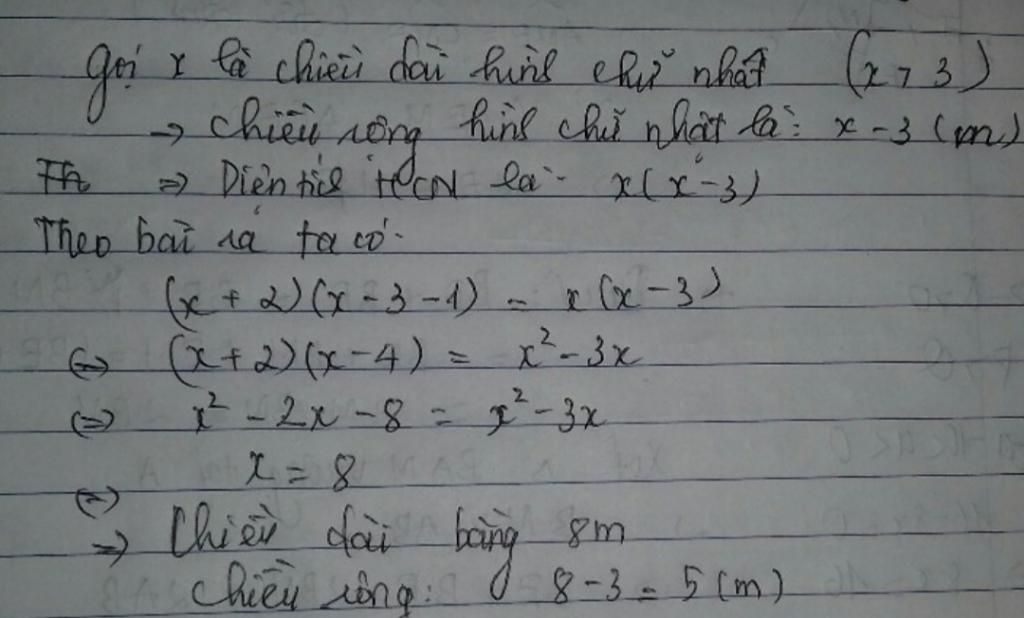 Gọi x là chiều dài hình chữ nhật (x > 3)
→ chiều rộng hình chữ nhật là: x - 3 (m)
⇒ Diện tích HCN là: x(x - 3)
Theo bài ra ta có:
(x + 2)(x - 3 - 1) = x(x - 3)
⇔ (x + 2)(x - 4) = x² - 3x
⇔ x² - 2x - 8 = x² - 3x
⇔ x = 8
⇒ Chiều dài bằng 8m
chiều rộng: 8 - 3 = 5 (m)